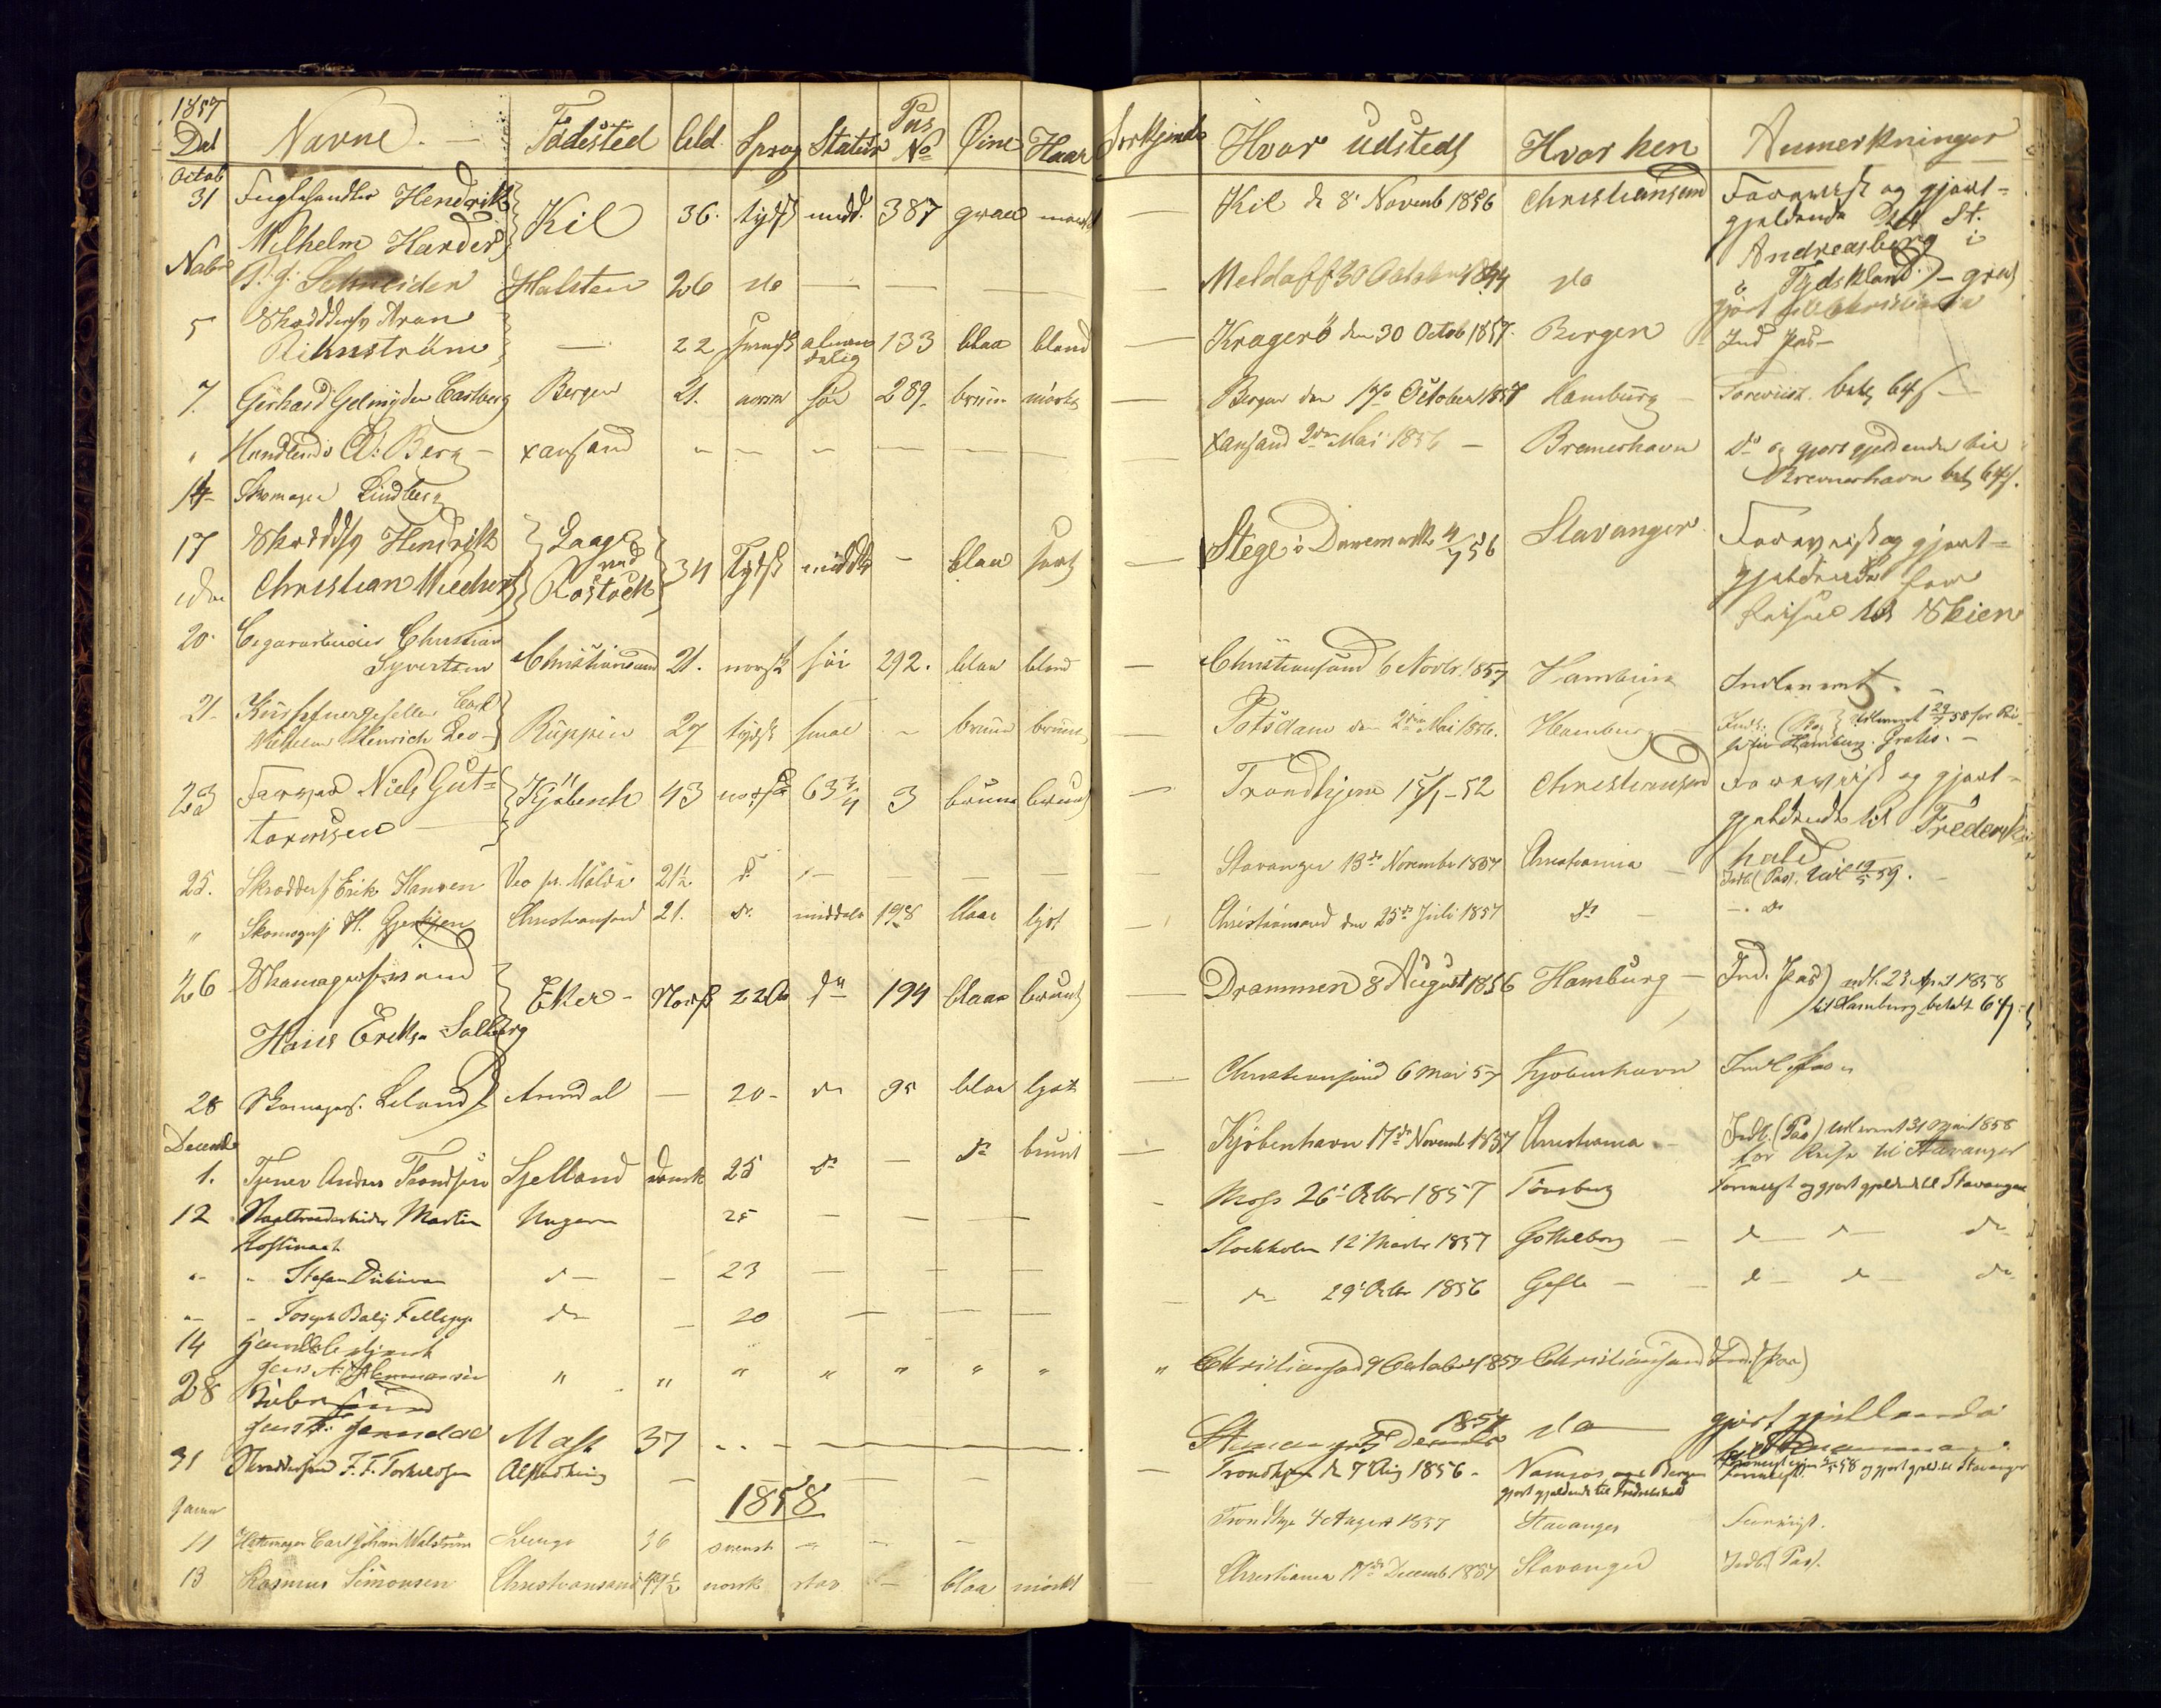 1857
Dat Navne. Fødested Ald. Sprog Statur Pas No Øine Haar Særkjende Hvor udstedt Hvorhen Anmerkninger
Octob
31 Fuglehandler Hendrik Wilhelm Harder Kiel 36. tydsk midd. 387 graae mørkt — Kiel d 8 Novemb 1856 Christiansand Forevist og gjort-
gjeldende til St.
Andreasberg i
Tydskland) - grat
Nobr P. J. Schneider Holsten 26 do — — — — — Meldorff 30 October 1854 do gjort til Christiania
5 Skræddersv Aron
Rihnström — 22 svensk almin
delig 133 blaa blond — Kragerö den 30 Octob 1857. Bergen Ind Pas —
7. Gerhard Gelmyden Castberg Bergen 21. norsk høi 289. bruun mørkt — Bergen den 17de October 1857 Hamburg — Forevist. bet. 64 s. —
" Handlende A. Berg — Xansand — — — — — — — Xansand 2den Mai 1856 — Bremerhavn do og gjort gjeldende til
Bremerhavn bet. 64 s.
14 Skomager Lindberg
17 Skræddsv Hendrik
Christian Wiechert Laage
ved
Rostock 34 Tydsk middls — blaa sort — Stege i Danemark 4/7 56 Stavanger Forevist og gjort-
gjeldende for
Reisen til Skien
20. Cigararbeider Christian
Syvertsen Christiansand 21. norsk høi 292. blaa blond — Christiansand 6 Novbr. 1857 Hamburg Indleveret.
21. Carl
Wilhelm Heinrich Leo — Ruppin 27 tydsk smal — bruun bruunt — Potsdam den 2den Mai 1856. Hamburg Indl. Pas Udleveret 29/7 58 for Rei-
se til Hamburg. Gratis. —
23 Farver Niels Gut-
tormsen Kjöbenh 43 norsk 63 3/4 3 bruune bruunt — Trondhjem 15/1 - 52 Christiansand Forevist og gjort-
gjeldende til Frederiks
hald
25. Skrædders Erik Hansen Veø pr. Molde 21½ do — — — — Stavanger 13de November 1857 Christiania — Indl. Pas. Udl 19/5 59.
" Skomagers H. Christiansand 21. do middels 198 blaae lyst — Christiansand den 25de Juli 1857 do — — do
26 Skomagersvend
Hans Eriksen Solberg Eker — Norsk 22 Aar do 194 blaae bruunt — Drammen 8 August 1856 Hamburg — Ind. Pas) udl. 23 April 1858
til Hamburg betalt 64 s.
28 Skomagers. Leland Arendal — 20 — do 95 blaa lyst — Christiansand 6 Mai 57 Kjøbenhavn Indl. Pas
Decemb
1. Tjener Anders Frandsen Sjelland dansk 25 do — do bruunt — Kjöbenhavn 17de Novemb 1857 Christiania — Indl. (Pas) Udleveret 31 Mai 1858
for Reise til Stavanger
12 Staaltraadarbeider Martin
Ungarn 25 — — — — Moss 26 Octbr 1857 Tönsberg Forevist og gjort gjeldende til Stavanger
" " Stefan do — — 23 — — — Stockholm 12 1857 Gøtheborg — do — do — do
" " Joseph do — 20 — — — — do 29 Octbr 1856 Gefle — do — do — do
14 Handelsbetjent
Jens A. Hermansen " " " " " " " " Christiansand 9 October 1857 Christiansand Ind. (Pas)
28
Jens Moss 37 — — — 1857 do — gjort gjeldende
31 Skræddersvend F. F. Torkelsen — — — — Trondhjem d. 7 Aug 1856. Namsos og Bergen
gjort gjeldende til Fredrikshald og gjort gjeld. til Stavanger
Januar 1858
11 Hattemager Carl Johan Walström 36 svensk — — — Trondhjem 4 August 1857 Stavanger Forevist.
13 Rasmus Simonsen Christiansand 49½ norsk stor — blaa mörkt — Christiania 17de Decemb 1857 Stavanger Indl. Pas.